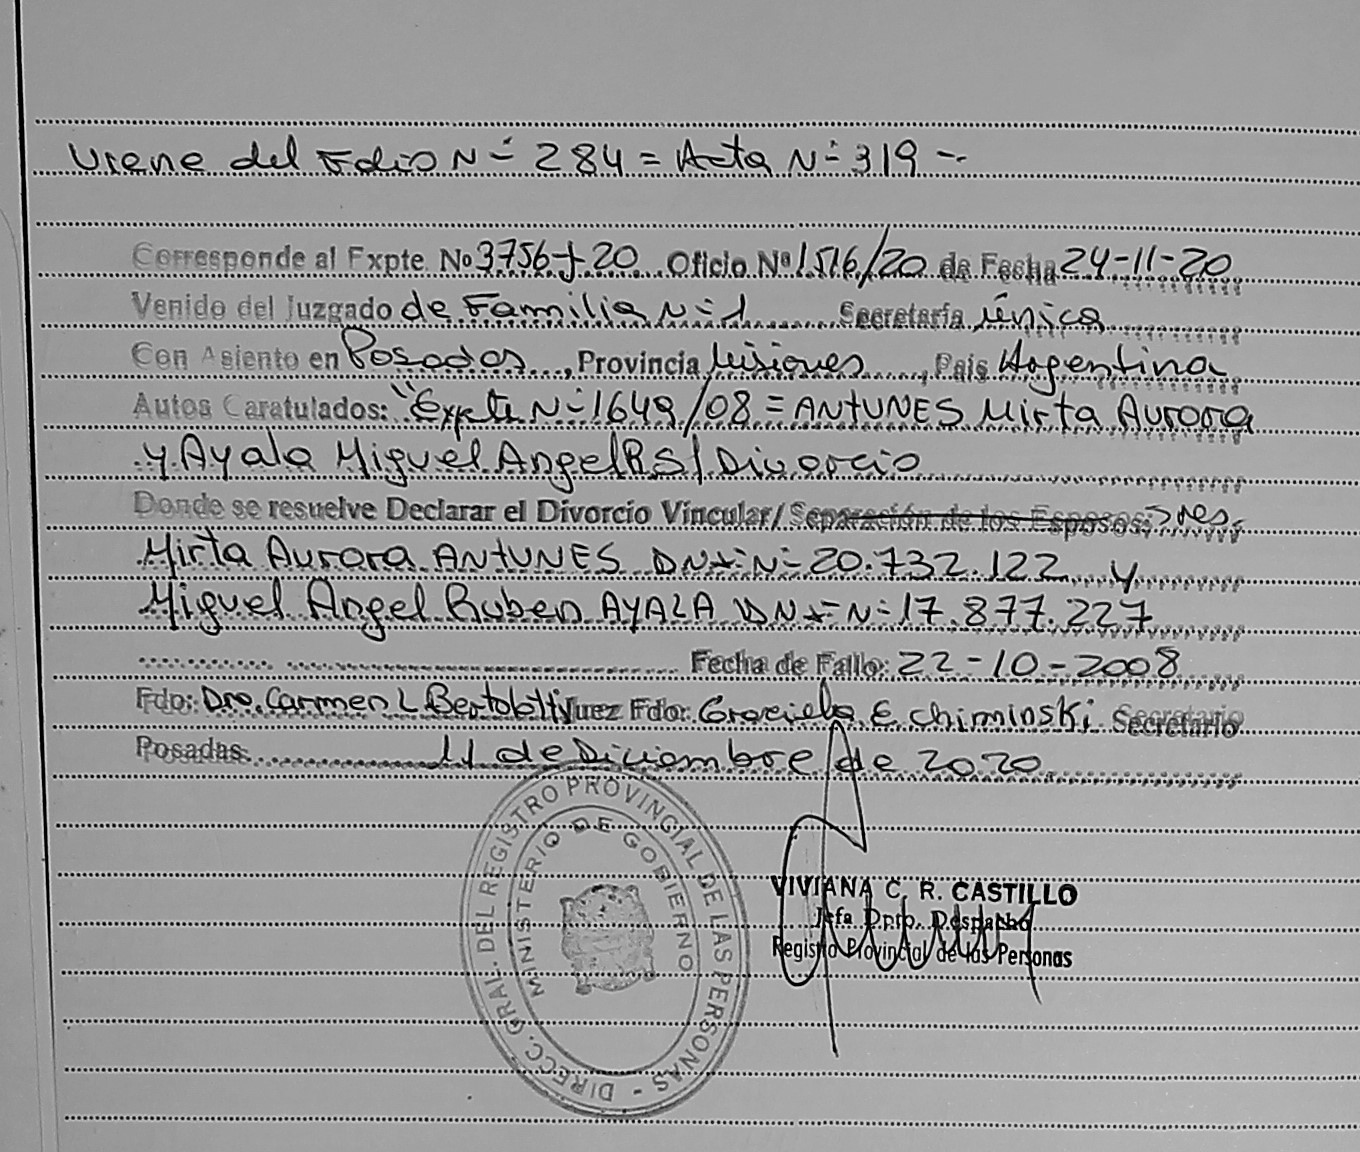 Viene del Folio N= 284 = Acta N= 319 -.
Corresponde al Expte. Nº 3756-J-20 Oficio Nº 1516/20 de Fecha 24-11-20
Venido del Juzgado de Familia N=1 Secretaría única
Con Asiento en Posadas, Provincia Misiones, País Argentina
Autos Caratulados: "Expte N=1649/08 = ANTUNES Mirta Aurora
y Ayala Miguel Angel R S/ Divorcio
Donde se resuelve Declarar el Divorcio Vincular/ Separación de los Esposos: Sres.
Mirta Aurora ANTUNES DNI=N=20.732.122 y
Miguel Angel Ruben AYALA DNI=N=17.877.227
Fecha de Fallo: 22-10-2008
Fdo: Dra. Carmen L Juez Fdo: Graciela E Chiminski Secretario
Posadas 11 de Diciembre de 2020
DIRECC. GRAL. DEL REGISTRO PROVINCIAL DE LAS PERSONAS -
MINISTERIO DE GOBIERNO
VIVIANA C. R. CASTILLO
Jefa Dpto. Despacho
Registro Provincial de las Personas